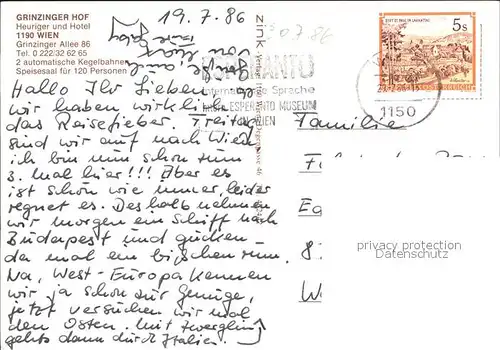 GRINZINGER HOF
Heuriger und Hotel
1190 WIEN
Grinzinger Allee 86
Tel. 0 222/32 62 65
2 automatische Kegelbahnen
Speisesaal für 120 Personen
19.7.86
Hallo Ihr Lieben
wir haben wirklich
das Reisefieber. Freitag
sind wir auf nach Wien
ich bin nun schon zum
3. mal hier!!! Aber es
ist schön wie immer, leider
regnet es. Deshalb nehmen
wir morgen ein Schiff nach
Budapest und gucken
da mal ein bißchen rum.
Na, West-Europa kennen
wir ja schon zur Genüge,
jetzt versuchen wir mal
den Osten. Mit Zwerglein
gehts dann durch Italien.
zink
ESPERANTO
Internationale Sprache
ESPERANTO MUSEUM
IN WIEN
5s
1150
Familie
privacy protection
Datenschutz